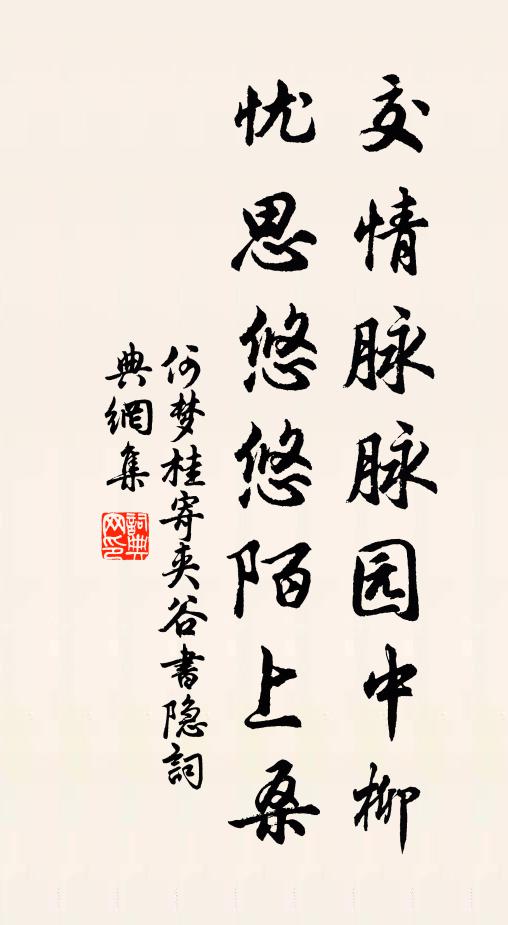 交情脉脉园中柳
忧思悠悠陌上桑
何梦桂寄夹谷书隐詞
典網集
詞典
网印